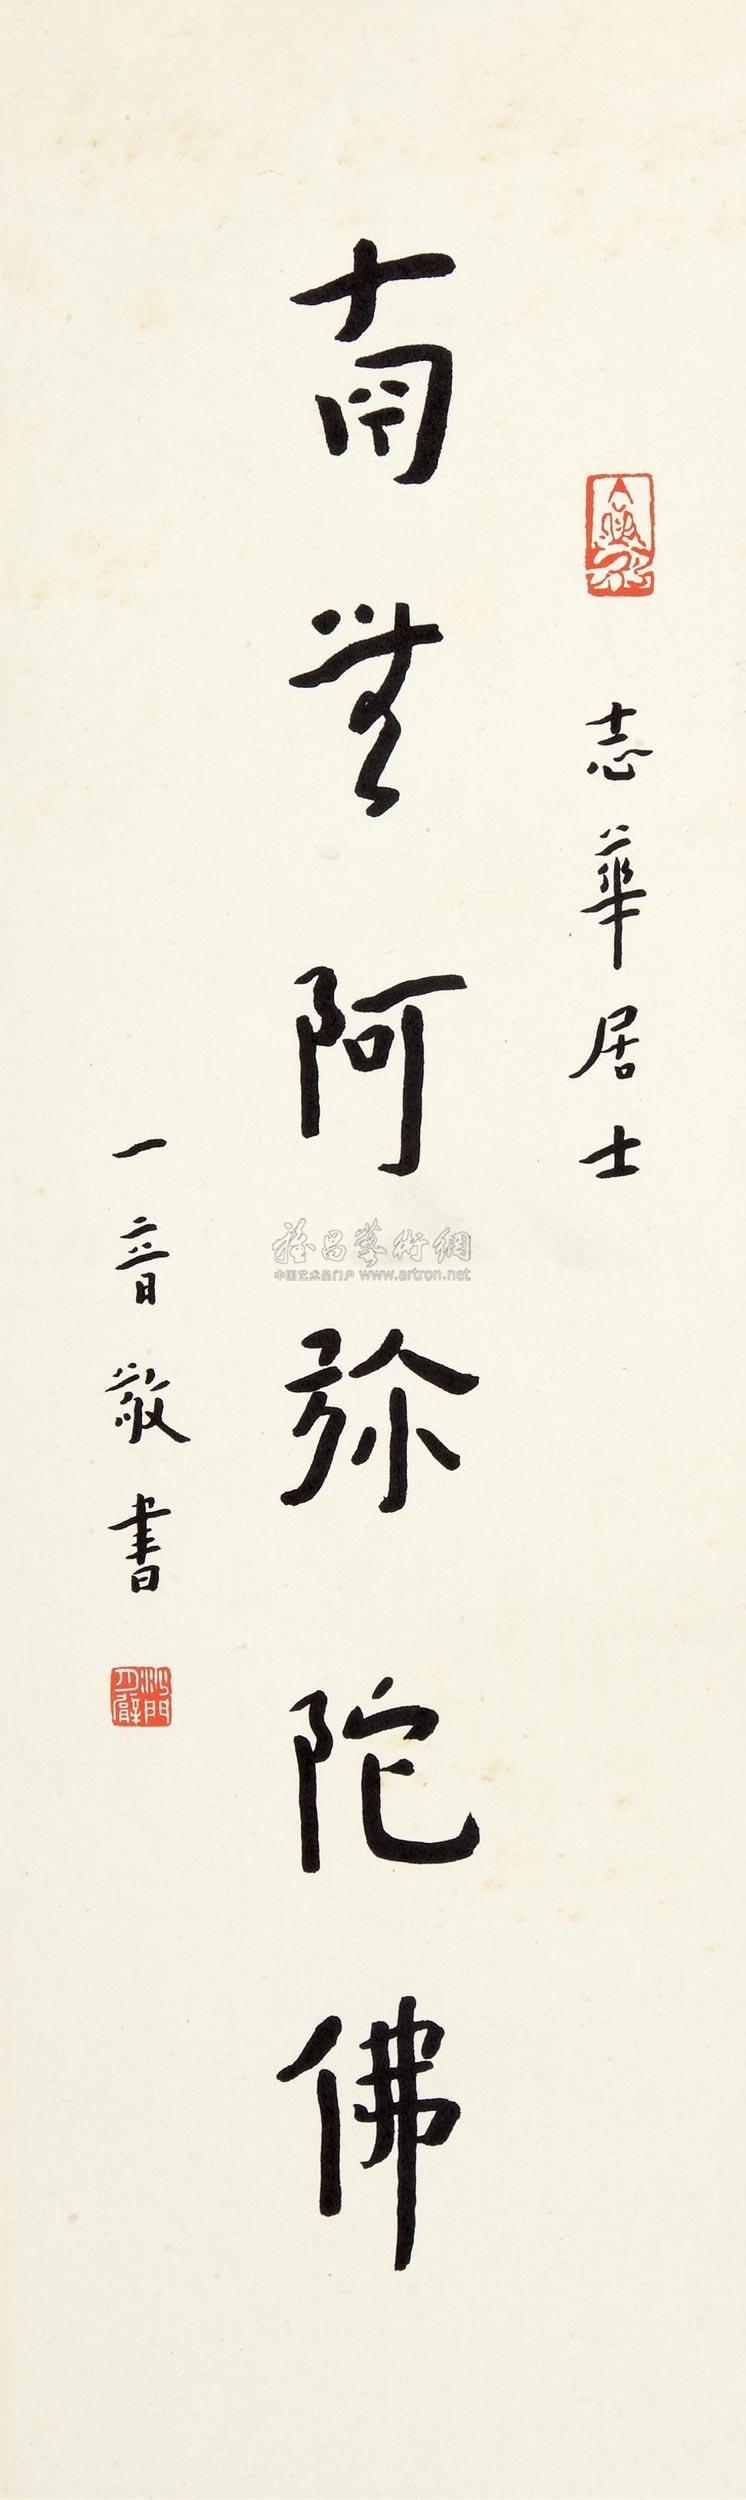 志華居士
南無阿弥陀佛
一音敬書
沙門月臂
雅昌藝術網
中国艺术品门户 www.artron.net